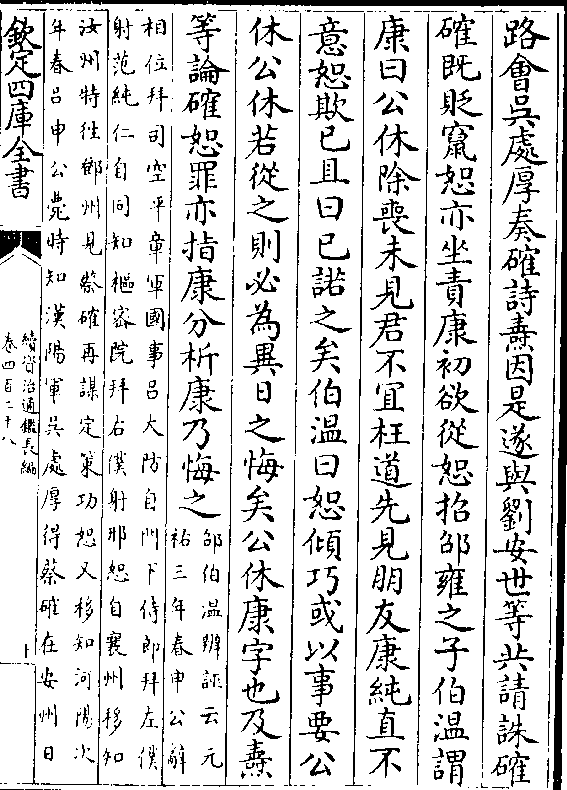 路會吳處厚奏確詩燾因是遂與劉安世等共請誅確
確既貶竄恕亦坐責康初欲從恕招邵雍之子伯温謂
康曰公休除喪未見君不宜枉道先見朋友康純直不
意恕欺已且曰已諾之矣伯温曰恕傾巧或以事要公
休公休若從之則必為異日之悔矣公休康字也及燾
等論確恕罪亦指康分析康乃悔之
邵伯温辨誣云元
祐三年春申公辭
相位拜司空平章軍國事吕大防自門下侍郎拜左僕
射范純仁自同知樞密院拜右僕射邢恕自襄州移知
汝州特徃鄧州見蔡確再謀定策功恕又移知河陽次
年春吕申公薨時知漢陽軍吳處厚得蔡確在安州日
欽定四庫全書
續資治通鑑長編
卷四百二十八